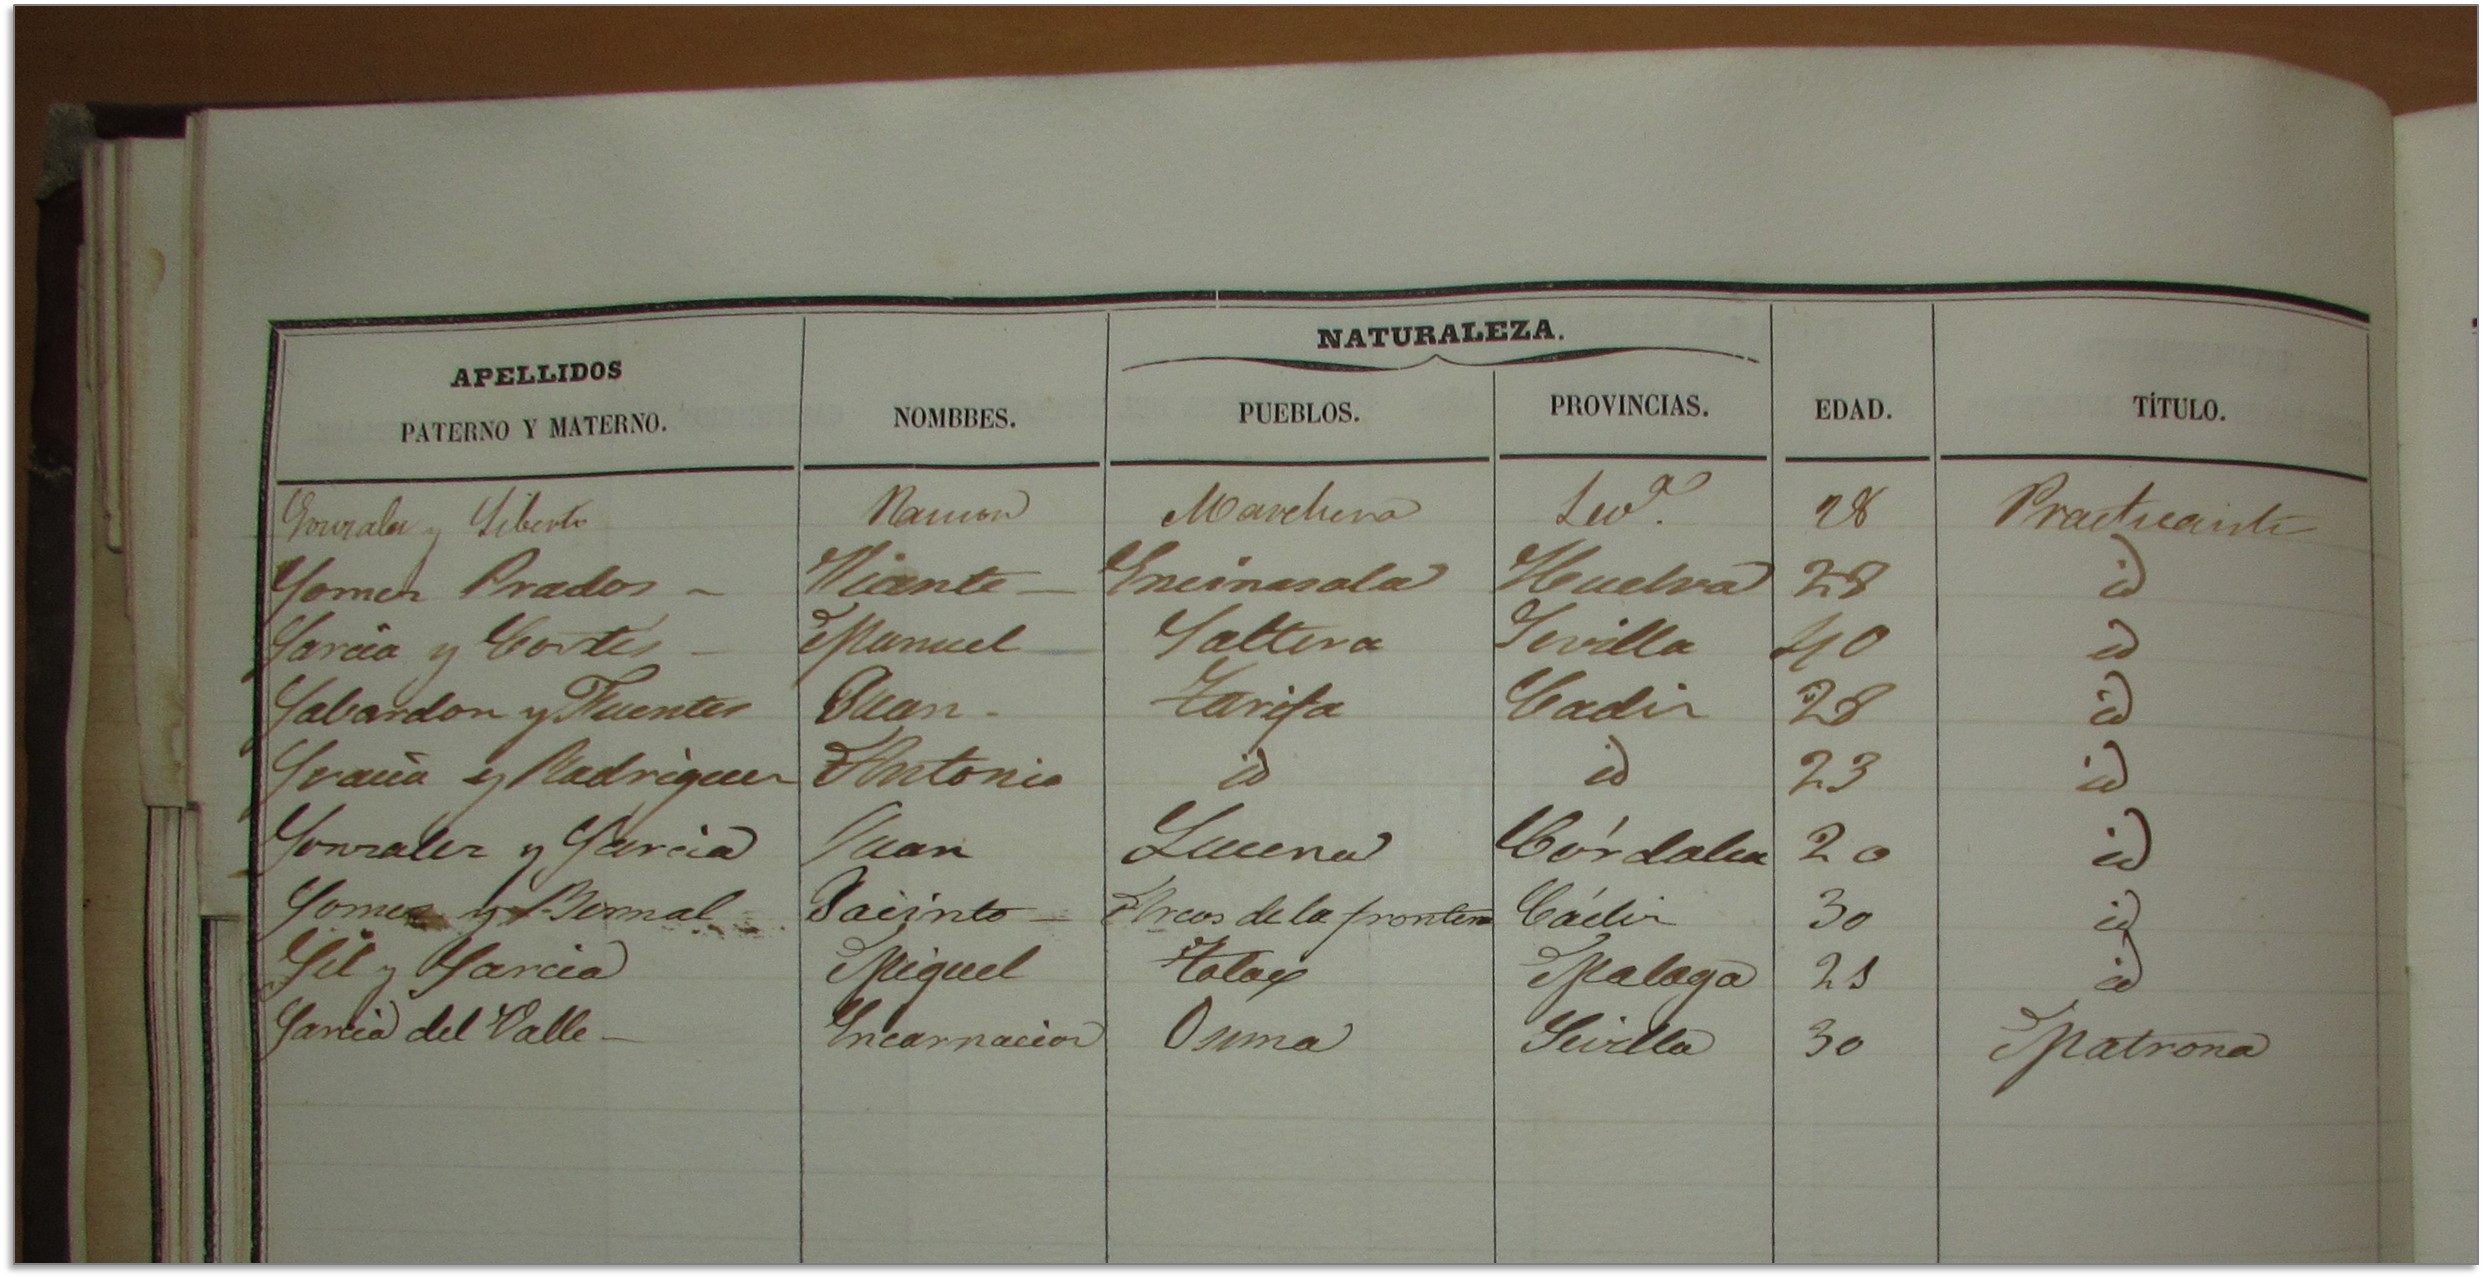 NATURALEZA.
APELLIDOS
PATERNO Y MATERNO. NOMBBES. PUEBLOS. PROVINCIAS. EDAD. TÍTULO.
Gonzalez y Siberto Ramon Marchena Sev.ª 28 Practicante
Gomez Prados - Vicente - Encinasola Huelva 28 id
Garcia y Cortés - Manuel Saltera Sevilla 40 id
Gabardon y Fuentes Juan - Tarifa Cadiz 28 id
y Rodriguez Antonio id id 23 id
Gonzalez y Garcia Juan Lucena Córdoba 20 id
Gomez y Bernal Jacinto - Arcos de la frontera Cádiz 30 id
Gil y Garcia Miguel Tolox Malaga 21 id
Garcia del Valle - Encarnacion Osuna Sevilla 30 Matrona